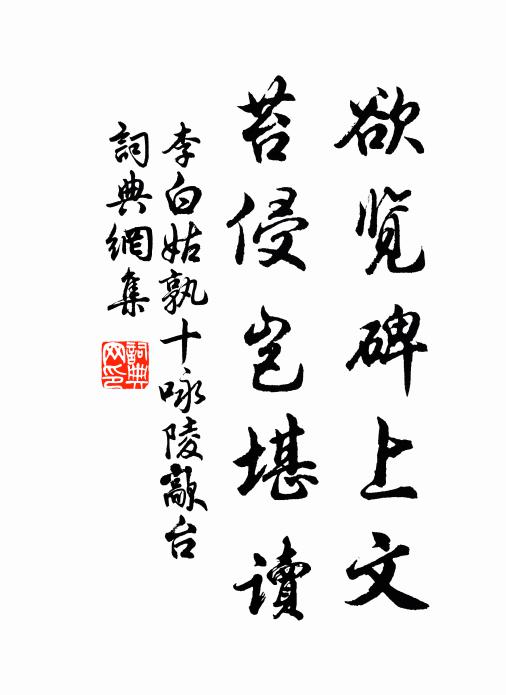 欲览碑上文
苔侵岂堪讀
李白姑孰十咏陵歊台
詞典網集
詞典网印